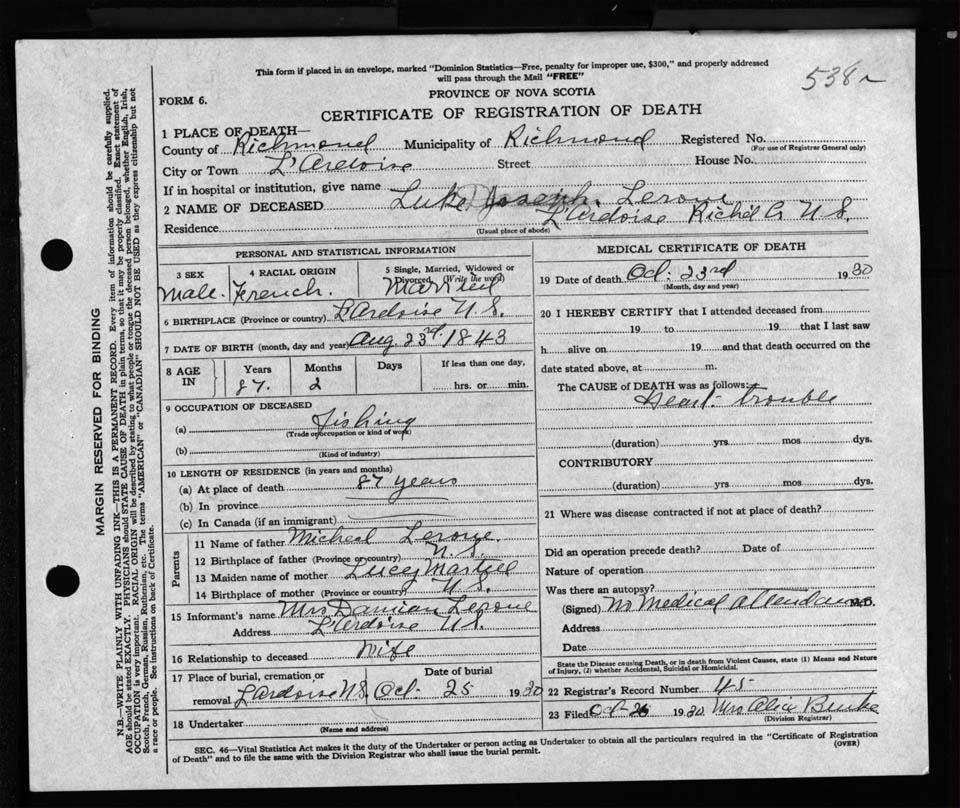 This form if placed in an envelope, marked "Dominion Statistics—Free, penalty for improper use, $300," and properly addressed
will pass through the Mail "FREE"
538
PROVINCE OF NOVA SCOTIA
FORM 6.
CERTIFICATE OF REGISTRATION OF DEATH
1 PLACE OF DEATH—
County of Richmond Municipality of Richmond Registered No.
(For use of Registrar General only)
City or Town L'Ardoise Street House No.
If in hospital or institution, give name
2 NAME OF DECEASED Luke Joseph
Residence L'Ardoise Rich'd Co N.S.
(Usual place of abode)
PERSONAL AND STATISTICAL INFORMATION
3 SEX 4 RACIAL ORIGIN 5 Single, Married, Widowed or
Divorced (Write the word)
Male. French. Married
6 BIRTHPLACE (Province or country) L'Ardoise N.S.
7 DATE OF BIRTH (month, day and year) Aug. 23rd. 1843
8 AGE IN Years Months Days If less than one day,
87. 2 hrs. or min.
9 OCCUPATION OF DECEASED
(a) Fishing
(Trade or occupation or kind of work)
(b)
(Kind of industry)
10 LENGTH OF RESIDENCE (in years and months)
(a) At place of death 87 years
(b) In province
(c) In Canada (if an immigrant)
Parents
11 Name of father Micheal
12 Birthplace of father (Province or country) N.S.
13 Maiden name of mother Lucey
14 Birthplace of mother (Province or country) N.S.
15 Informant's name Mrs Damian
Address L'Ardoise N.S.
16 Relationship to deceased Wife
17 Place of burial, cremation or Date of burial
removal L'Ardoise N.S. Oct. 25 1930
18 Undertaker
(Name and address)
MEDICAL CERTIFICATE OF DEATH
19 Date of death Oct. 23rd 1930
(Month, day and year)
20 I HEREBY CERTIFY that I attended deceased from
19 to 19 that I last saw
h alive on 19 and that death occurred on the
date stated above, at m.
The CAUSE of DEATH was as follows:
Heart trouble
(duration) yrs mos dys.
CONTRIBUTORY
(duration) yrs mos dys.
21 Where was disease contracted if not at place of death?
Did an operation precede death? Date of
Nature of operation
Was there an autopsy?
(Signed) No Medical attendance M.D.
Address
Date
State the Disease causing Death, or in death from Violent Causes, state (1) Means and Nature
of Injury, (2) whether Accidental, Suicidal or Homicidal.
22 Registrar's Record Number 45
23 Filed Oct 26 1930 Mrs Alice Burke
(Division Registrar)
SEC. 46—Vital Statistics Act makes it the duty of the Undertaker or person acting as Undertaker to obtain all the particulars required in the "Certificate of Registration
of Death" and to file the same with the Division Registrar who shall issue the burial permit.
(OVER)
MARGIN RESERVED FOR BINDING
N.B.—WRITE PLAINLY WITH UNFADING INK—THIS IS A PERMANENT RECORD. Every item of information should be carefully supplied.
AGE should be stated EXACTLY. PHYSICIANS should STATE CAUSE OF DEATH in plain terms, so that it may be properly classified. Exact statement of
OCCUPATION is very important. RACIAL ORIGIN will be described by stating to what people or tongue the deceased person belonged, whether English, Irish,
Scotch, French, German, Russian, Ruthenian, etc. The terms "AMERICAN" or "CANADIAN" SHOULD NOT BE USED as they express citizenship but not
a race or people. See instructions on back of Certificate.